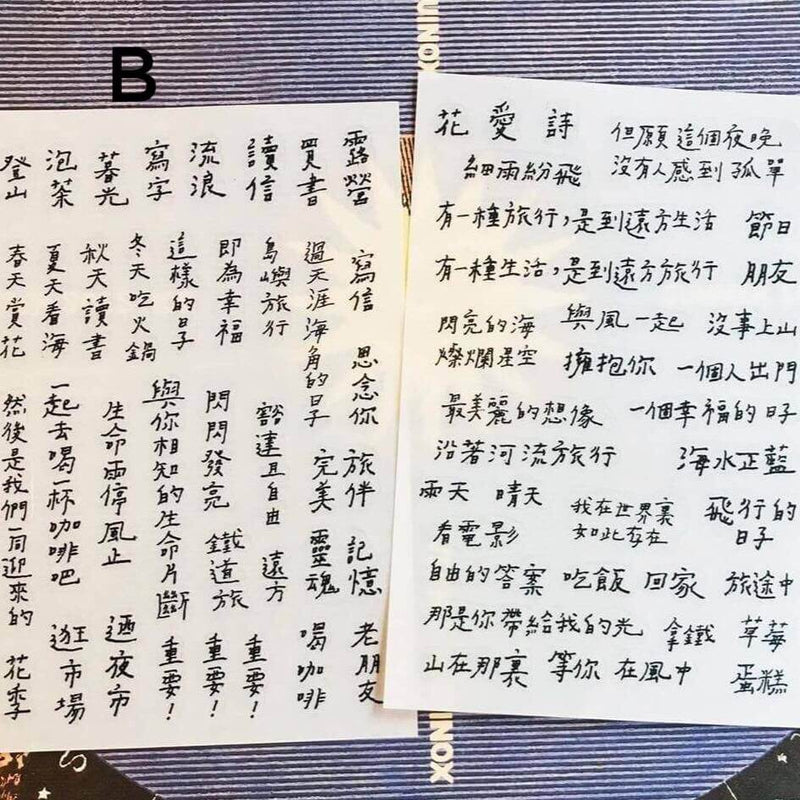 B
露營
買書
讀信
流浪
寫字
暮光
泡茶
登山
寫信 思念你
過天涯海角的日子
島嶼旅行
即為幸福
這樣的日子
冬天吃火鍋
秋天讀書
夏天看海
春天賞花
旅伴 記憶 老朋友
完美 靈魂 喝咖啡
豁達且自由 遠方 重要！
閃閃發亮 鐵道旅 重要！
與你相知的生命片斷 重要！
生命雨停風止 迺夜市
一起去喝一杯咖啡吧 逛市場
然後是我們一同迎來的花季
花愛詩 但願這個夜晚
細雨紛飛 沒有人感到孤單
有一種旅行，是到遠方生活 節日
有一種生活，是到遠方旅行 朋友
閃亮的海 與風一起 沒事上山
燦爛星空 擁抱你 一個人出門
最美麗的想像 一個幸福的日子
沿著河流旅行 海水正藍
雨天 晴天 我在世界裏 飛行的
看電影 如此存在 日子
自由的答案 吃飯 回家 旅途中
那是你帶給我的光 拿鐵 草莓
山在那裏 等你 在風中 蛋糕